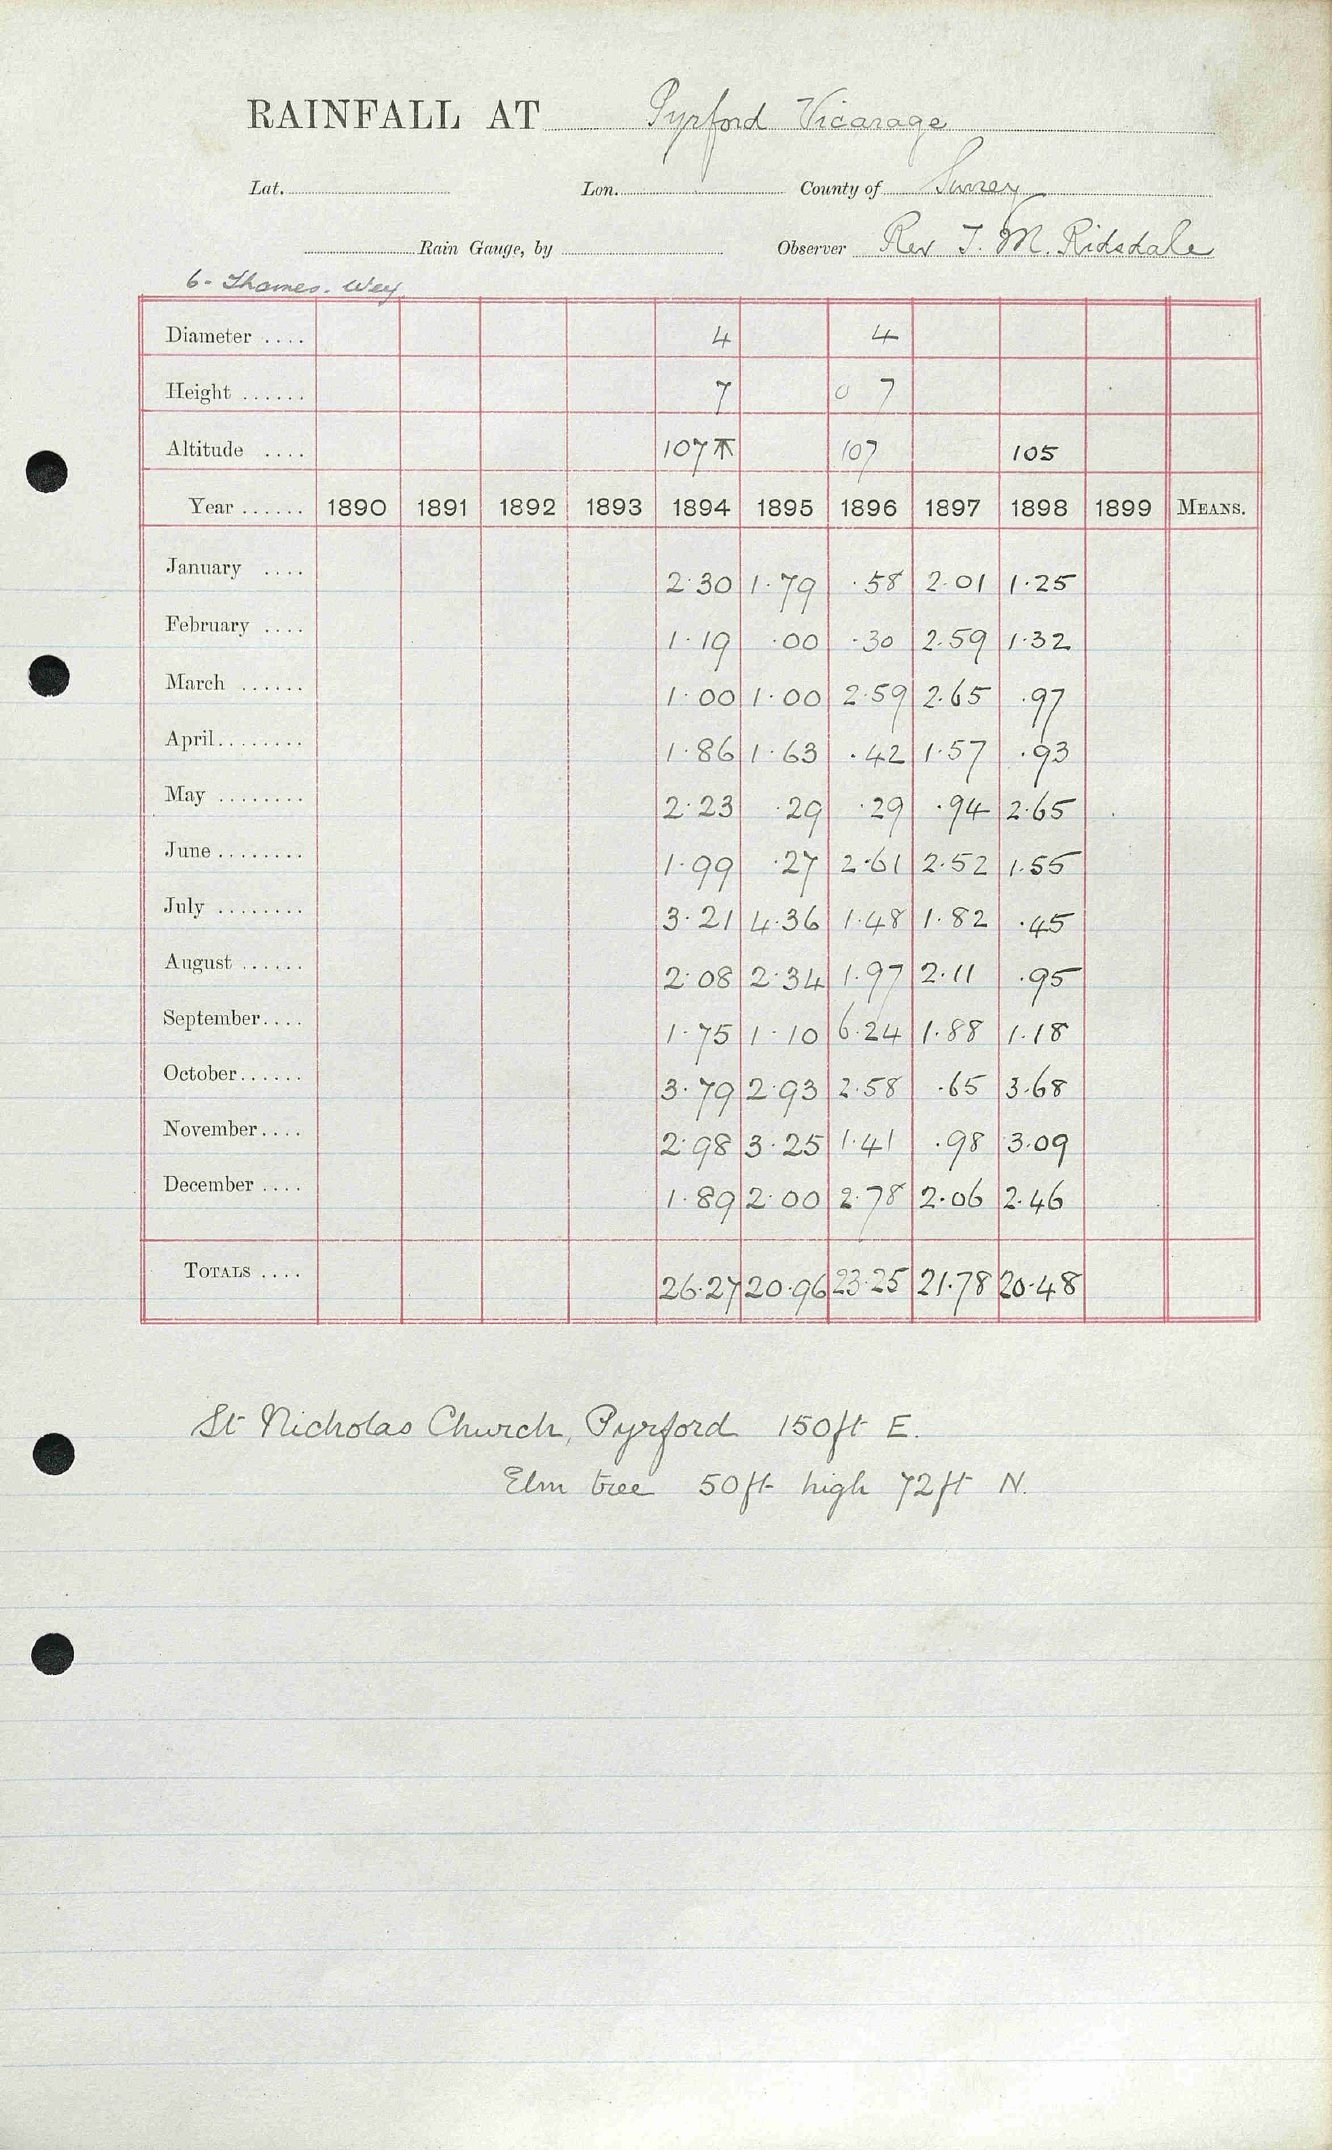 RAINFALL AT Pyrford Vicarage
Lat. Lon. County of Surrey
Rain Gauge, by Observer Rev J. M. Ridsdale
6 - Thames. Wey
Diameter .... 4 4
Height ...... 7 0 7
Altitude .... 107 107 105
Year ...... 1890 1891 1892 1893 1894 1895 1896 1897 1898 1899 MEANS.
January .... 2.30 1.79 .58 2.01 1.25
February .... 1.19 .00 .30 2.59 1.32
March ...... 1.00 1.00 2.59 2.65 .97
April ........ 1.86 1.63 .42 1.57 .93
May ........ 2.23 .29 .29 .94 2.65
June ........ 1.99 .27 2.61 2.52 1.55
July ........ 3.21 4.36 1.48 1.82 .45
August ...... 2.08 2.34 1.97 2.11 .95
September .... 1.75 1.10 6.24 1.88 1.18
October ...... 3.79 2.93 2.58 .65 3.68
November .... 2.98 3.25 1.41 .98 3.09
December .... 1.89 2.00 2.78 2.06 2.46
TOTALS .... 26.27 20.96 23.25 21.78 20.48
St Nicholas Church, Pyrford 150ft E.
Elm tree 50ft high 72ft N.